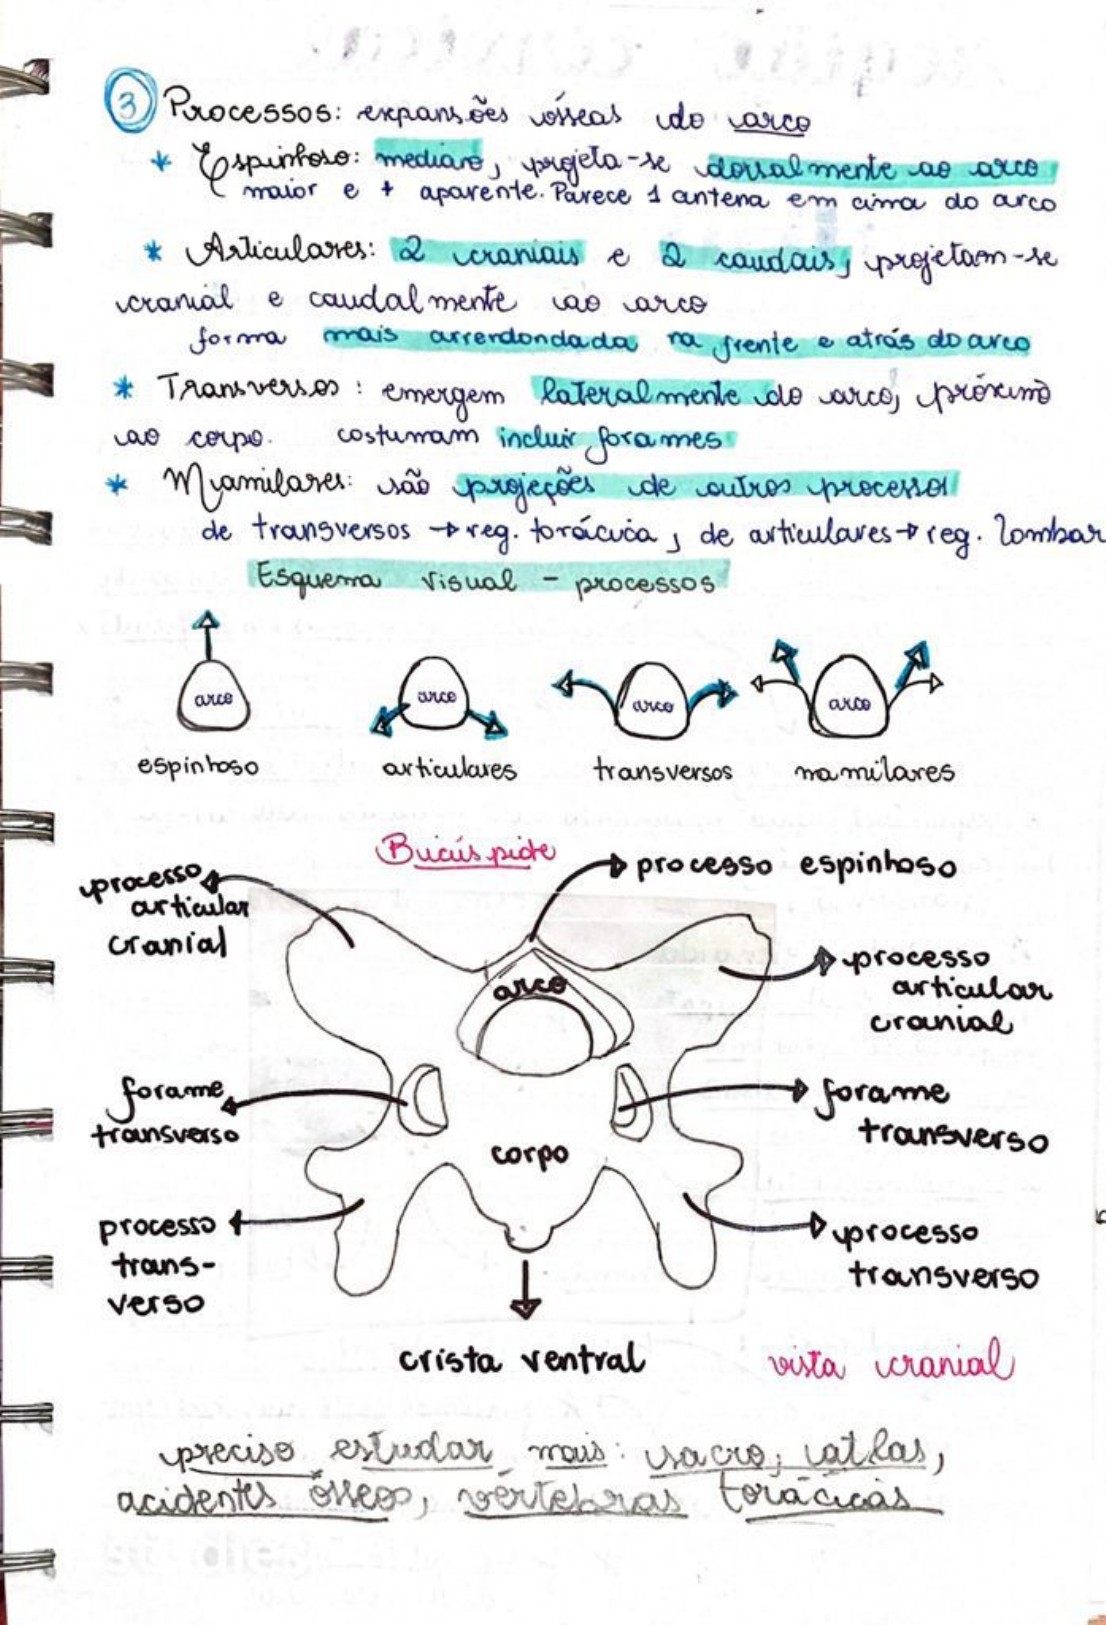 3 Processos: expansões ósseas do arco
* Espinhoso: mediano, projeta-se dorsalmente ao arco
maior e + aparente. Parece 1 antena em cima do arco
* Articulares: 2 craniais e 2 caudais, projetam-se
cranial e caudalmente ao arco
forma mais arrendondada na frente e atrás do arco
* Transversos: emergem lateralmente do arco, próximo
ao corpo. costumam incluir forames
* Mamilares: são projeções de outros processos
de transversos → reg. torácica, de articulares → reg. lombar
Esquema visual - processos
arco
arco
arco
arco
espinhoso
articulares
transversos
mamilares
Bicúspide
processo espinhoso
processo
articular
cranial
arco
processo
articular
cranial
forame
transverso
forame
transverso
corpo
processo
trans-
verso
processo
transverso
crista ventral
vista cranial
preciso estudar mais: sacro, atlas,
acidentes ósseos, vértebras torácicas